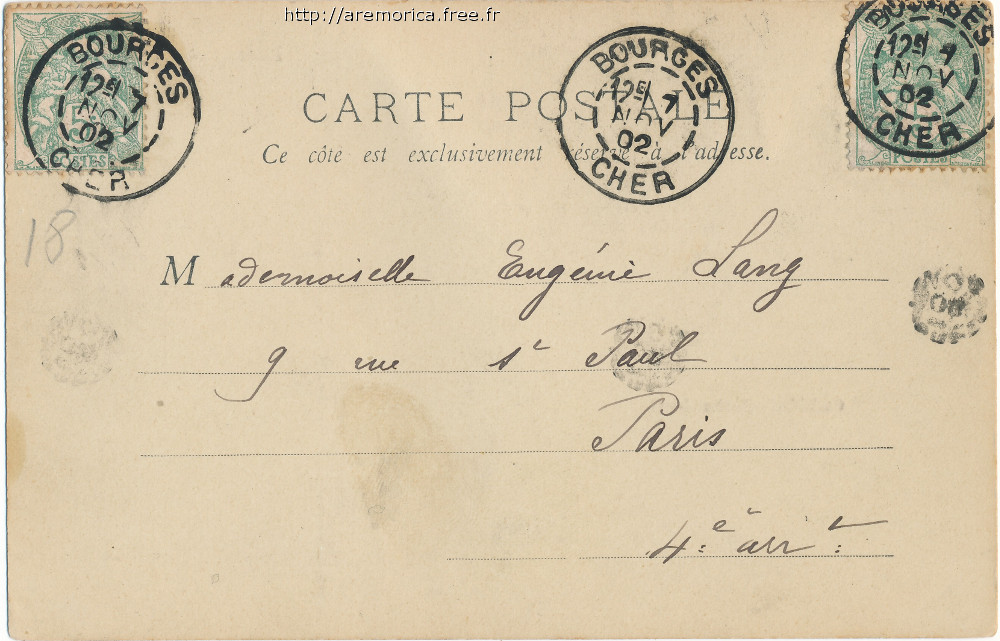 http://aremorica.free.fr
BOURGES
12E 7
NOV
02
CHER
BOURGES
12E 7
NOV
02
CHER
BOURGES
12E 7
NOV
02
CHER
POSTES
POSTES
CARTE POSTALE
Ce côté est exclusivement réservé à l'adresse.
18.
Mademoiselle Eugénie Lang
9 rue St Paul
Paris
4e arrt